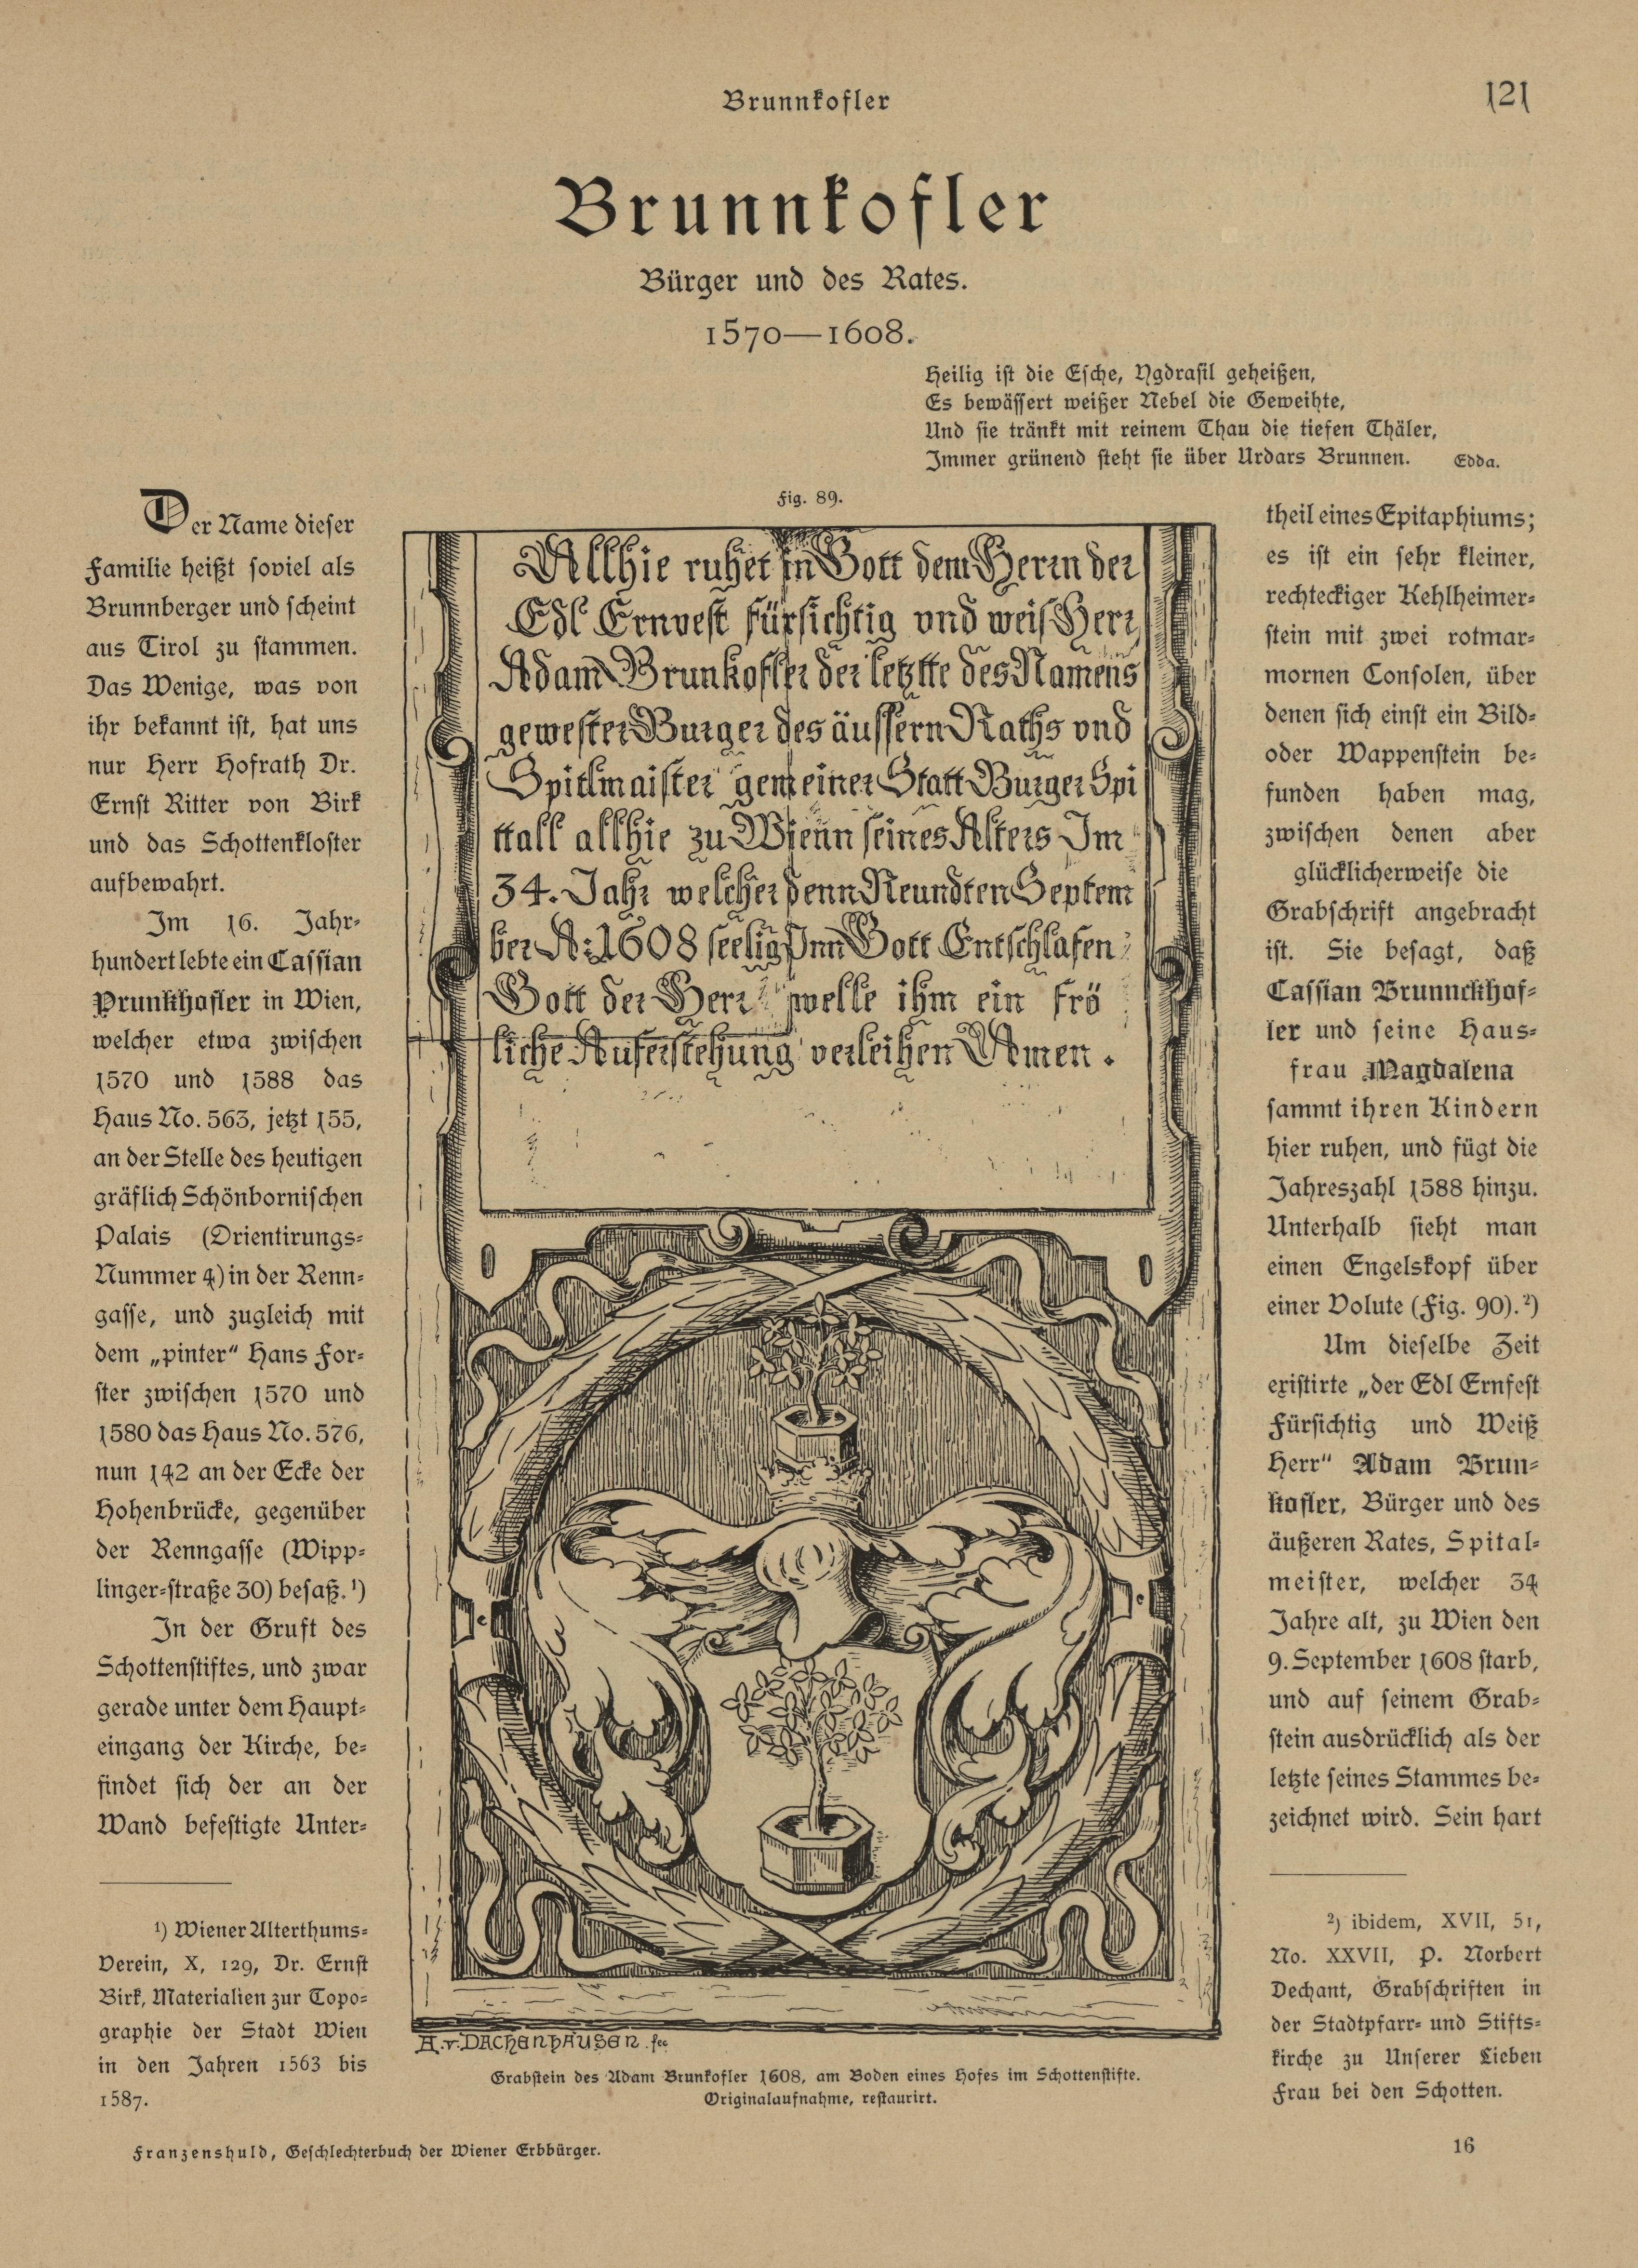 Brunnkofler
121
Brunnkofler
Bürger und des Rates.
1570—1608.
Heilig ist die Esche, Ygdrasil geheißen,
Es bewässert weißer Nebel die Geweihte,
Und sie tränkt mit reinem Thau die tiefen Thäler,
Immer grünend steht sie über Urdars Brunnen. Edda.
Der Name dieser
Familie heißt soviel als
Brunnberger und scheint
aus Tirol zu stammen.
Das Wenige, was von
ihr bekannt ist, hat uns
nur Herr Hofrath Dr.
Ernst Ritter von Birk
und das Schottenkloster
aufbewahrt.
Im 16. Jahr-
hundert lebte ein Cassian
Prunkhofler in Wien,
welcher etwa zwischen
1570 und 1588 das
Haus No. 563, jetzt 155,
an der Stelle des heutigen
gräflich Schönbornischen
Palais (Orientirungs-
Nummer 4) in der Renn-
gasse, und zugleich mit
dem „pinter“ Hans For-
ster zwischen 1570 und
1580 das Haus No. 576,
nun 142 an der Ecke der
Hohenbrücke, gegenüber
der Renngasse (Wipp-
linger-straße 30) besaß.¹)
In der Gruft des
Schottenstiftes, und zwar
gerade unter dem Haupt-
eingang der Kirche, be-
findet sich der an der
Wand befestigte Unter-
¹) Wiener Alterthums-
Verein, X, 129, Dr. Ernst
Birk, Materialien zur Topo-
graphie der Stadt Wien
in den Jahren 1563 bis
1587.
Fig. 89.
Allhie ruhet in Gott dem Herrn der
Edl Ernvest fürsichtig vnd weis Herr
Adam Brunkofler der letztte des Namens
gewester Burger des äussern Raths vnd
Spitlmaister gemeiner Statt Burger Spi
ttall allhie zu Wienn seines Alters Im
34. Jahr welcher denn Neundten Septem
ber A: 1608 seelig Inn Gott Entschlafen
Gott der Herr welle ihm ein frö
liche Auferstehung verleihen Amen.
A. v. DACHENHAUSEN. fec
Grabstein des Adam Brunkofler 1608, am Boden eines Hofes im Schottenstifte.
Originalaufnahme, restaurirt.
theil eines Epitaphiums;
es ist ein sehr kleiner,
rechteckiger Kehlheimer-
stein mit zwei rotmar-
mornen Consolen, über
denen sich einst ein Bild-
oder Wappenstein be-
funden haben mag,
zwischen denen aber
glücklicherweise die
Grabschrift angebracht
ist. Sie besagt, daß
Cassian Brunnckhof-
ler und seine Haus-
frau Magdalena
sammt ihren Kindern
hier ruhen, und fügt die
Jahreszahl 1588 hinzu.
Unterhalb sieht man
einen Engelskopf über
einer Volute (Fig. 90).²)
Um dieselbe Zeit
existirte „der Edl Ernfest
Fürsichtig und Weiß
Herr“ Adam Brun-
kofler, Bürger und des
äußeren Rates, Spital-
meister, welcher 34
Jahre alt, zu Wien den
9. September 1608 starb,
und auf seinem Grab-
stein ausdrücklich als der
letzte seines Stammes be-
zeichnet wird. Sein hart
²) ibidem, XVII, 51,
No. XXVII, P. Norbert
Dechant, Grabschriften in
der Stadtpfarr- und Stifts-
kirche zu Unserer Lieben
Frau bei den Schotten.
Franzenshuld, Geschlechterbuch der Wiener Erbbürger.
16